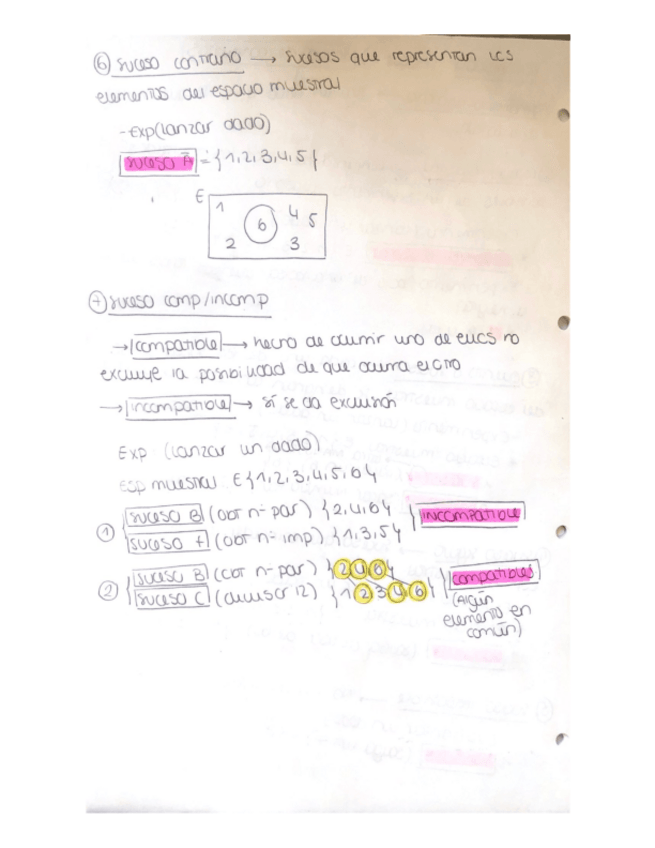 6 suceso contrario → sucesos que representan los
elementos del espacio muestral
- Exp (lanzar dado)
suceso Ā = {1,2,3,4,5}
E 1 4 5
6
2 3
7 suceso comp/incomp
→ compatible → hecho de ocurrir uno de ellos no
excluye la posibilidad de que ocurra el otro
→ incompatible → sí se da exclusión
Exp (lanzar un dado)
Esp muestral E{1,2,3,4,5,6}
1 suceso B (obt nº par) {2,4,6} incompatible
suceso F (obt nº imp) {1,3,5}
2 suceso B (obt nº par) {2 4 6} compatibles
suceso C (divisor 12) {1 2 3 4 6} (Algún
elemento en
común)